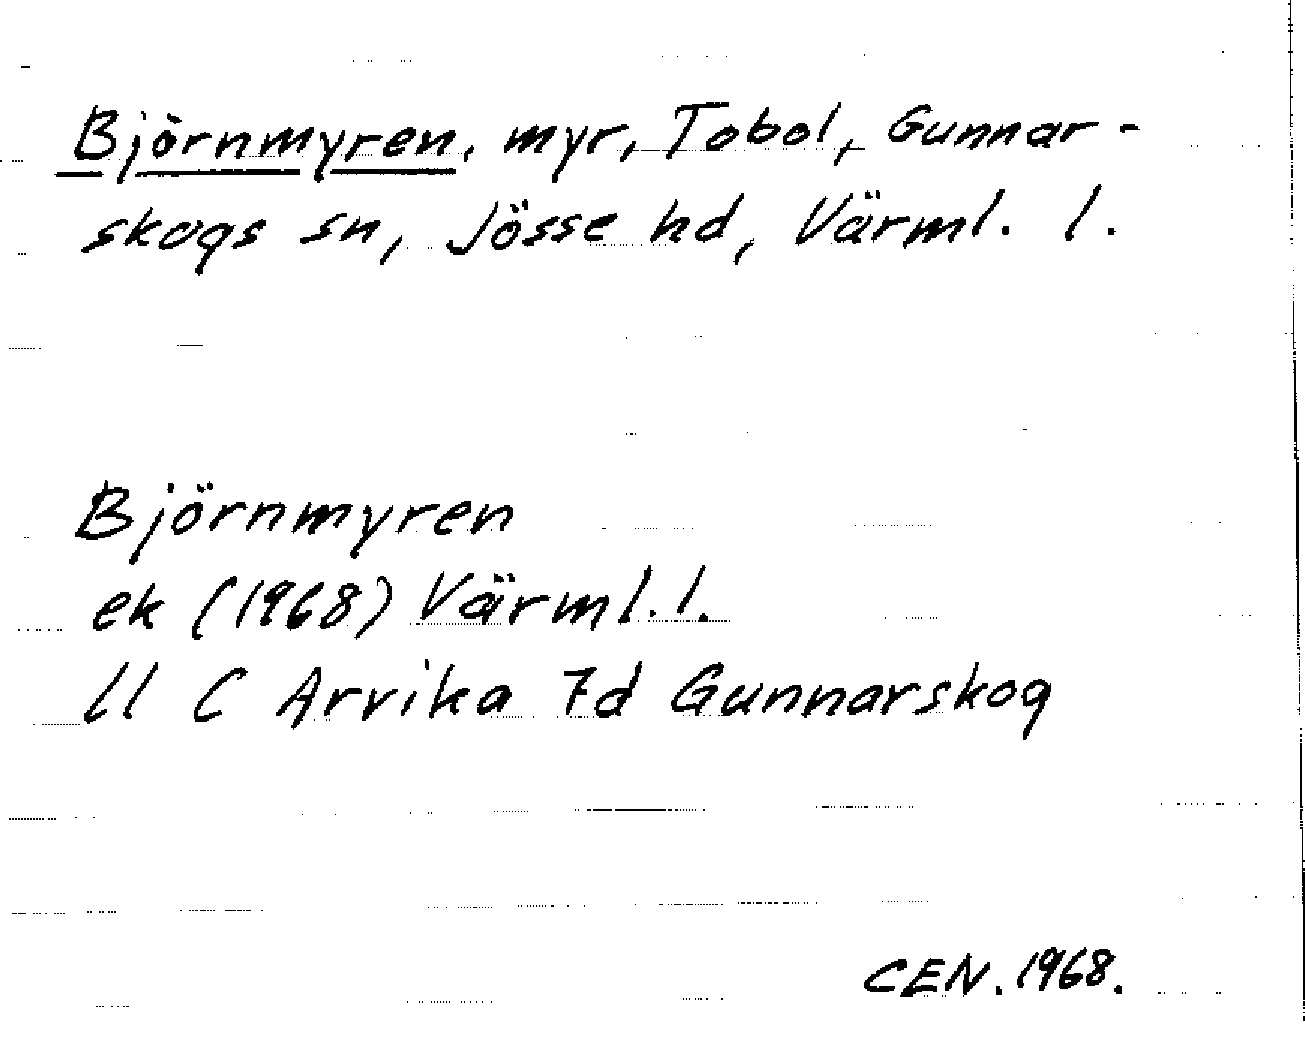 Björnmyren, myr, Tobol, Gunnar-
skogs sn, Jösse hd, Värml. l.
Björnmyren
ek (1968) Värml. l.
11 C Arvika 7d Gunnarskog
CEN. 1968.